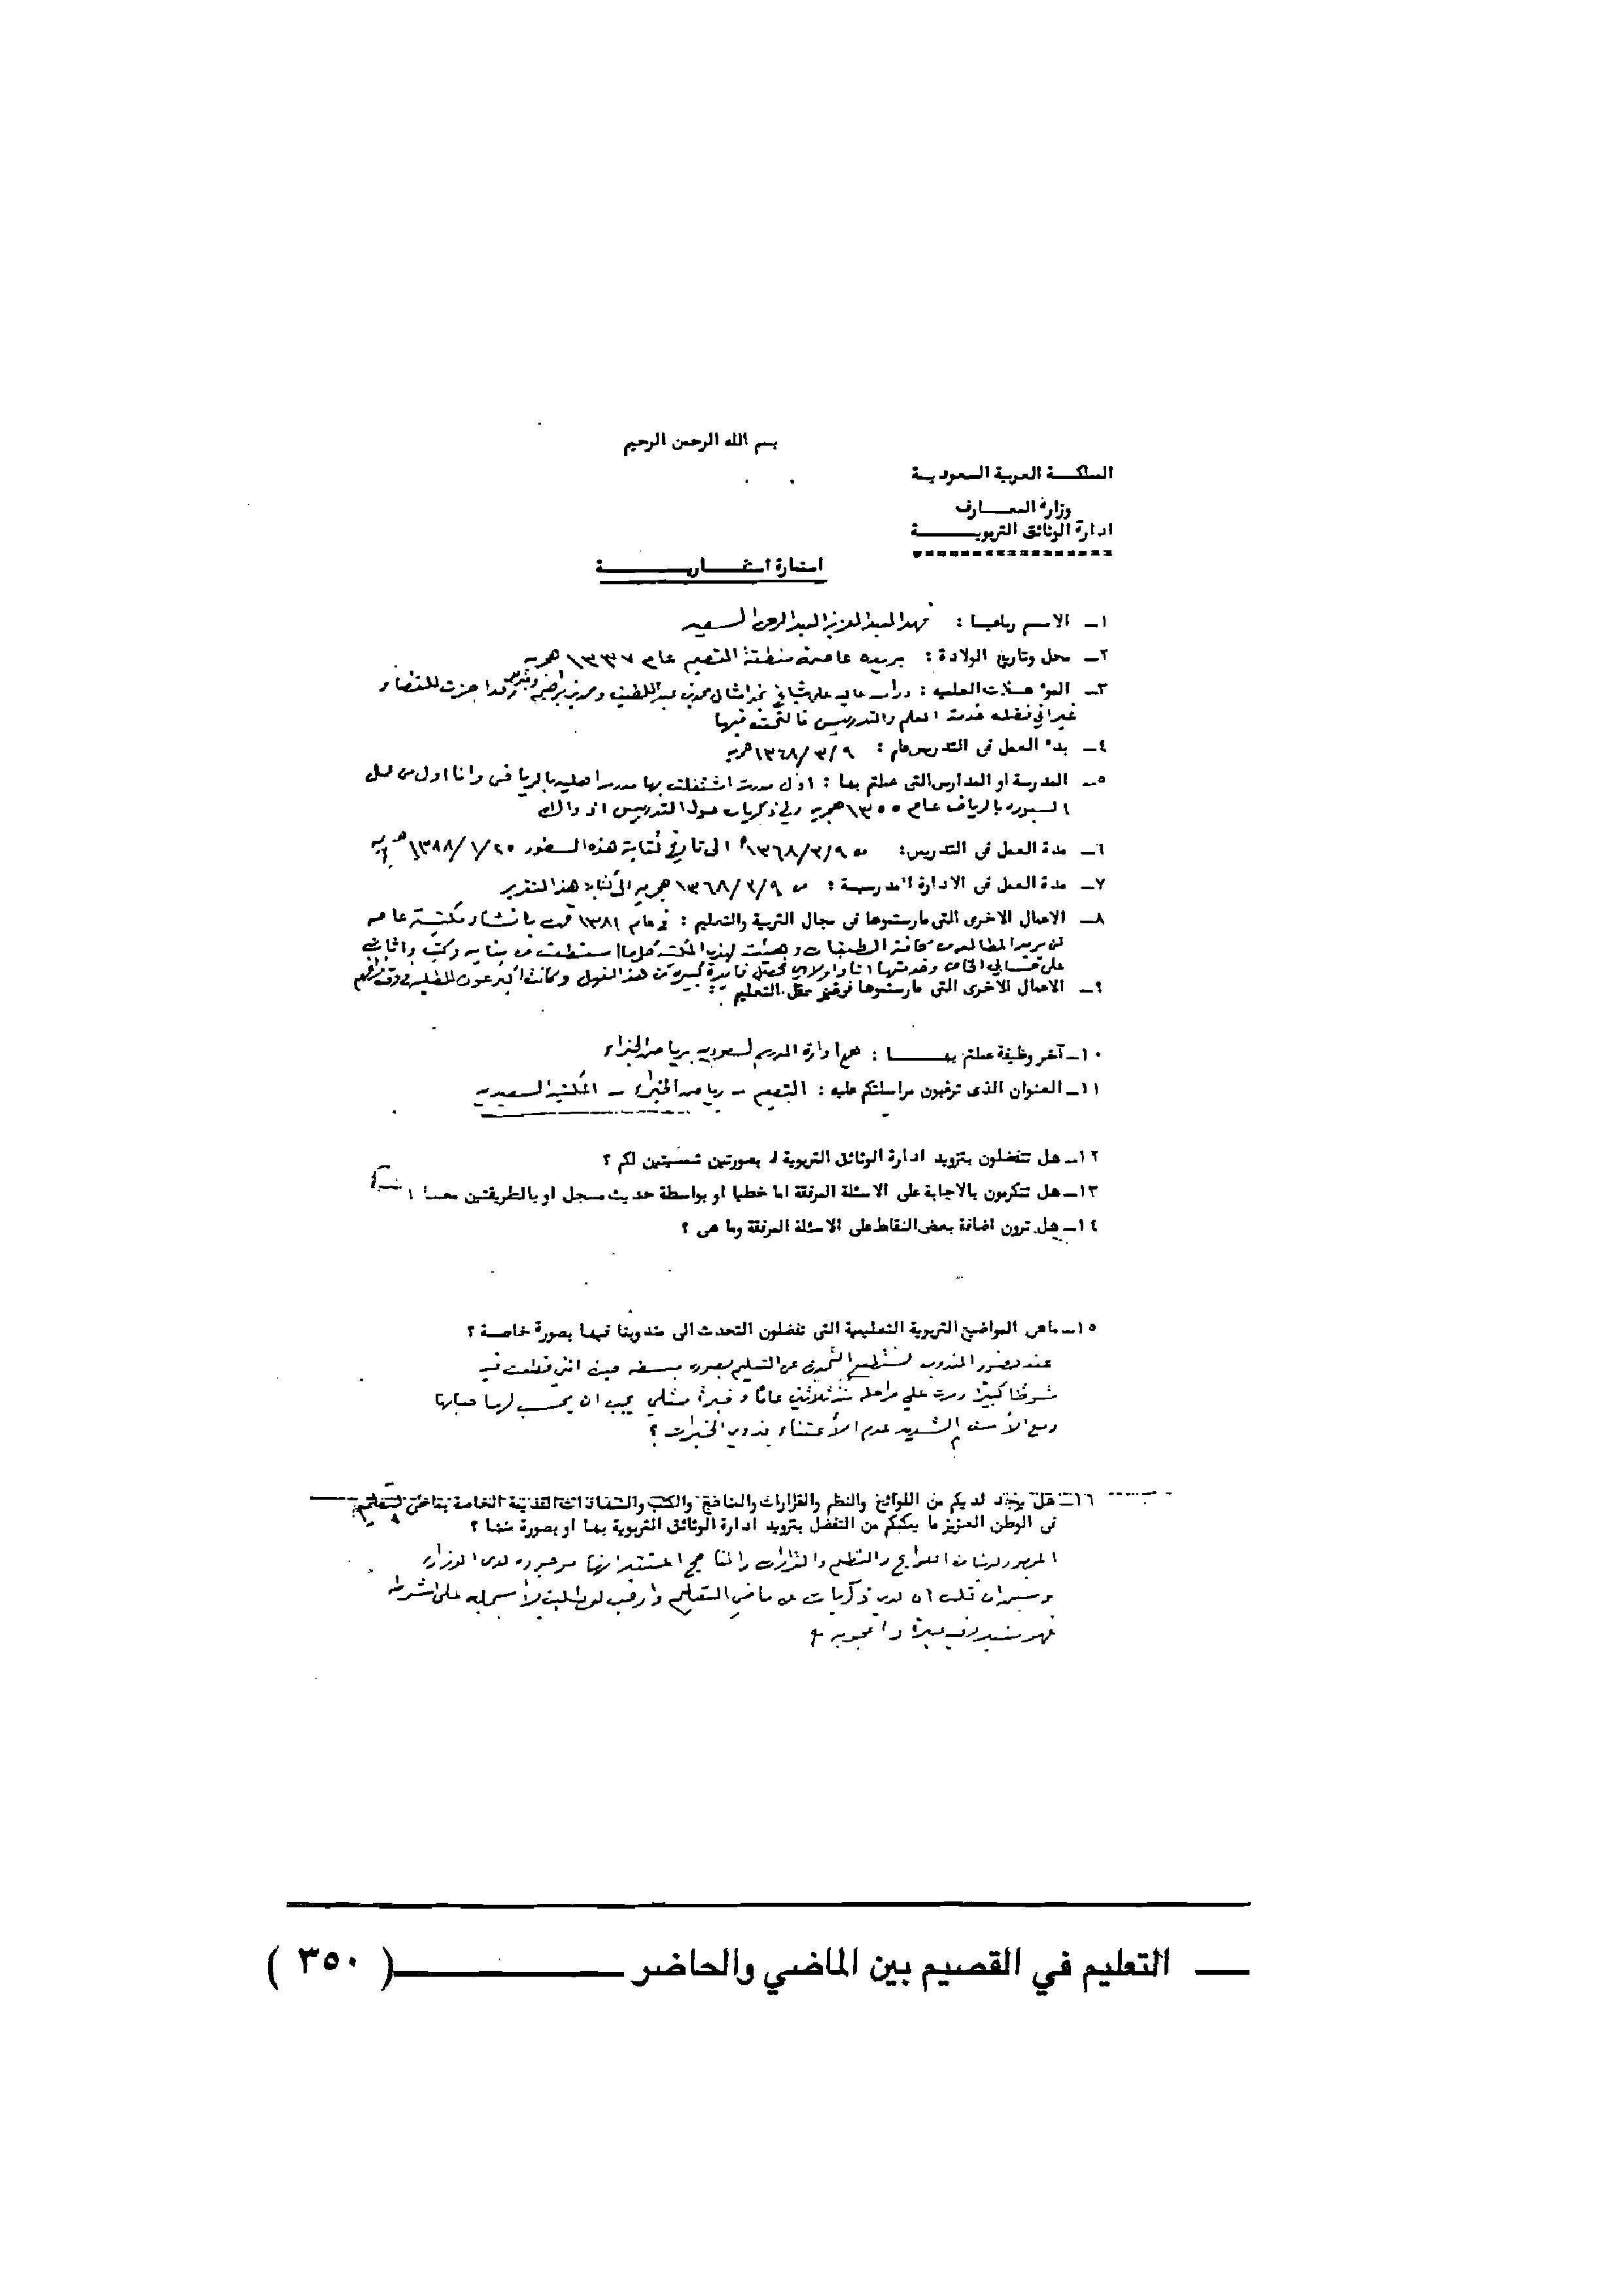 بسم الله الرحمن الرحيم
المملكة العربية السعودية
وزارة المعارف
ادارة الوثائق التربوية
استمارة استقرارية
١ـ الاسم رباعيا : فهد العبد العزيز العبد الرحمن السعيد
٢ـ محل وتاريخ الولادة : بريده عاصمة منطقة القصيم عام ١٣٣٧ هجريه
٣ـ المؤهلات العلمية : دراسه عاليه على مشايخ محمد بن عبد اللطيف للقضاء و
غير اني فضلت خدمة العلم والتدريس فالتحقت فيها
٤ـ بدء العمل فى التدريس عام : ١٣٦٨/٣/٩ هجريه
٥ـ المدرسة او المدارس التى عملتم بها : اول مدرسة اشتغلت بها مدرسة اهليه بالرياض وانا اول من
السبوره بالرياض عام ١٣٥٥ هجريه ولي ذكريات حول التدريس
٦ـ مدة العمل فى التدريس : من ١٣٦٨/٣/٩ الى تاريخ كتابة هذه السطور ١٣٨٨/١/٢٥ هجريه
٧ـ مدة العمل فى الادارة المدرسية : من ١٣٦٨/٣/٩ هجريه الى كتابة هذا التقرير
٨ـ الاعمال الاخرى التى مارستموها فى مجال التربية والتعليم : في عام ١٣٨١ قمت بانشاء مكتبة عامه
لمن يريد المطالعه من كافة الطبقات وهيئت لهذه المكتبه كلما استطعت من بنايه وكتب واثاث
على حسابي الخاص
٩ـ الاعمال الاخرى التى مارستموها فى غير حقل التعليم :
١٠ـ آخر وظيفة عملتم بها : ادارة المدرسه السعوديه برياض الخبراء
١١ـ العنوان الذى ترغبون مراسلتكم عليه : القصيم ـ رياض الخبراء ـ المكتبة السعيديه
١٢ـ هل تتفضلون بتزويد ادارة الوثائق التربوية بصورتين شمسيتين لكم ؟
١٣ـ هل تتكرمون بالاجابة على الاسئلة المرفقة اما خطيا او بواسطة حديث مسجل او بالطريقتين معا ؟
١٤ـ هل ترون اضافة بعض النقاط على الاسئلة المرفقة وما هى ؟
١٥ـ ماهى المواضيع التربوية التعليمية التى تفضلون التحدث الى مندوبنا فيها بصورة خاصة ؟
عند حضور المندوب نستطيع التحدث عن التعليم بصوره مبسطه حيث انني قطعت فيه
شوطا كبيرا ومرت علي مراحله منذ ثلاثين عاما وخبرة مثلي يجب ان يحسب لها حسابها
ومع الأسف الشديد عدم الأعتناء بذوي الخبرات ؟
١٦ـ هل يوجد لديكم من اللوائح والنظم والقرارات والمناهج والكتب والشهادات القديمة الخاصة بماضى التعليم
فى الوطن العزيز ما يمكنكم من التفضل بتزويد ادارة الوثائق التربوية بها او بصورة منها ؟
الموجود لدينا من اللوائح والنظم والقرارات والمناهج اعتقد انها موجوده لدى الوزاره
وسبق ان قلت ان لدي ذكريات عن ماضي التعليم وارغب لأسجله على اشرطه
ـــ التعليم في القصيم بين الماضي والحاضر ـــ ( ٣٥٠ )